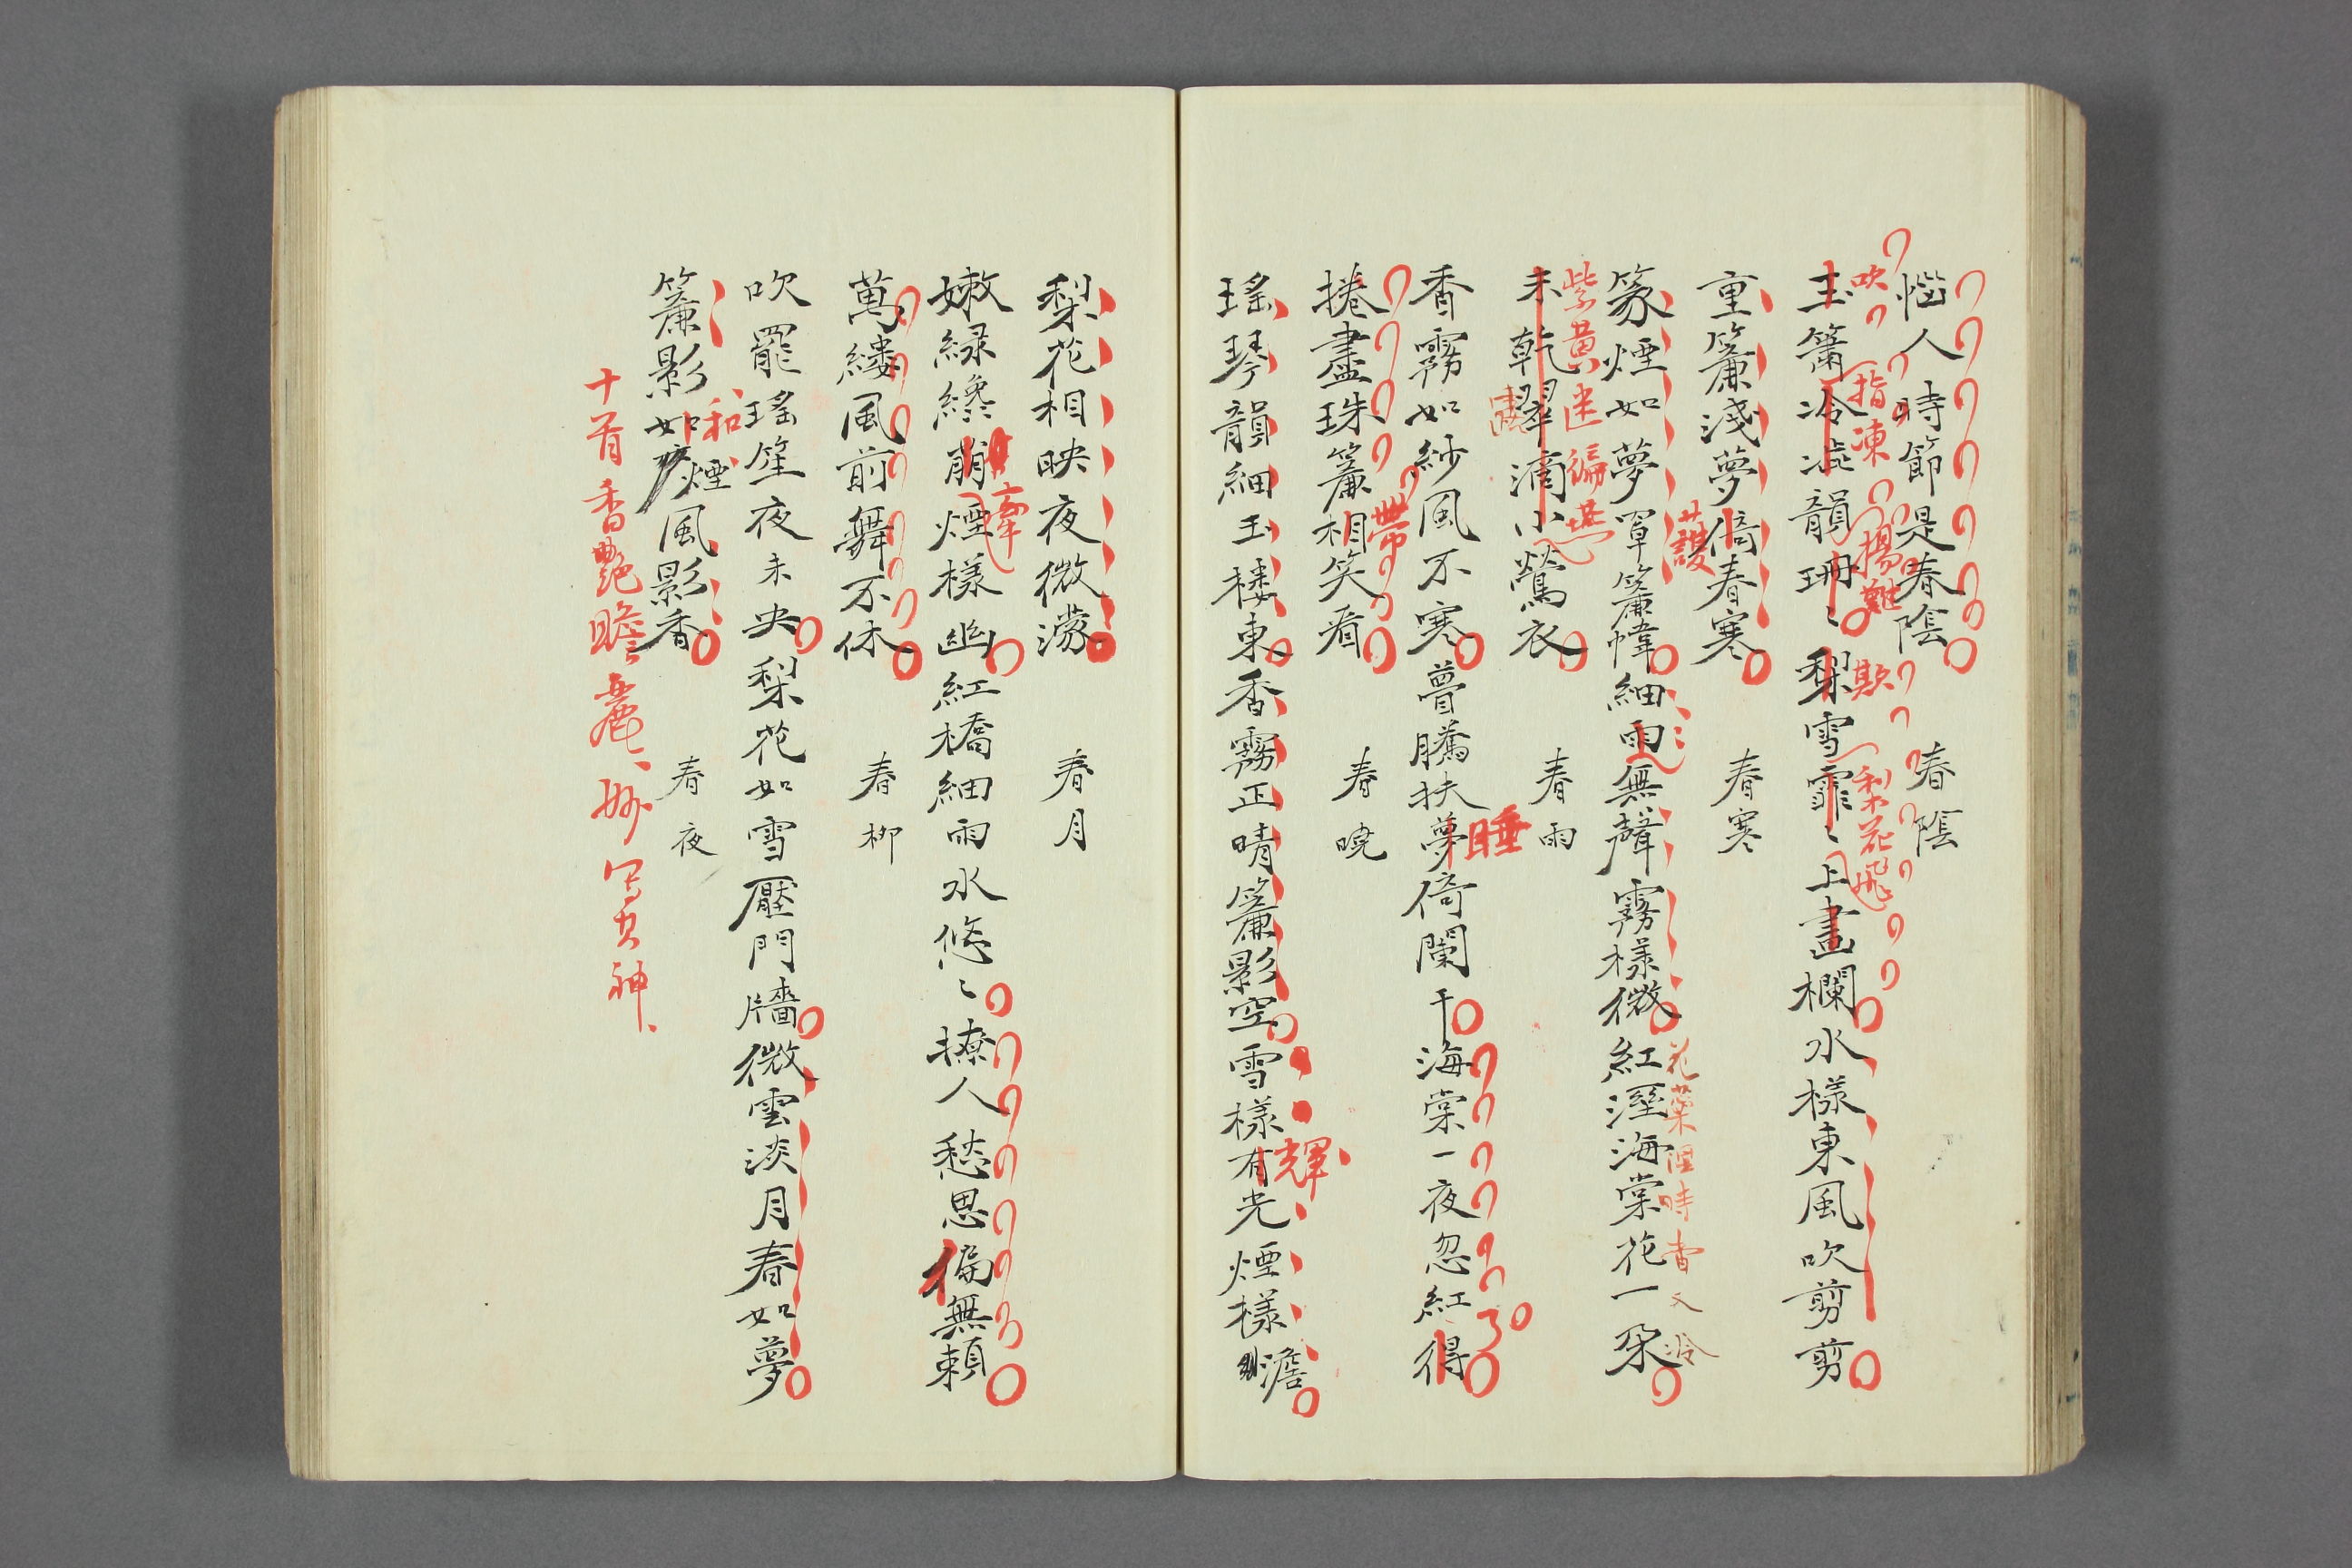 惱人時節是春陰
春陰
吹
指凍
揚難
欺
梨花飛
玉簫冷澁韻珊〻梨雪霏〻上畫欄水樣東風吹剪剪
護
重簾淺夢倚春寒
春寒
篆煙如夢罩簾幃細雨無聲霧樣微紅溼海棠花一朶
花藥溼時香又冷
紫黃迷徧
未乾翠滴小鶯衣
春雨
睡
香霧如紗風不寒瞢騰扶夢倚闌干海棠一夜忽紅得
帶
捲盡珠簾相笑看
春曉
輝
瑤琴韻細玉樓東香霧正晴簾影空雪樣有光煙樣澹
梨花相映夜微濛
春月
牽
嫩綠纔崩煙樣幽紅橋細雨水悠〻撩人愁思偏無賴
萬縷風前舞不休
春柳
吹罷瑤笙夜未央梨花如雪壓門牆微雲淡月春如夢
和
簾影如煙風影香
春夜
十首香艷瞻麗、妙寫貞神、